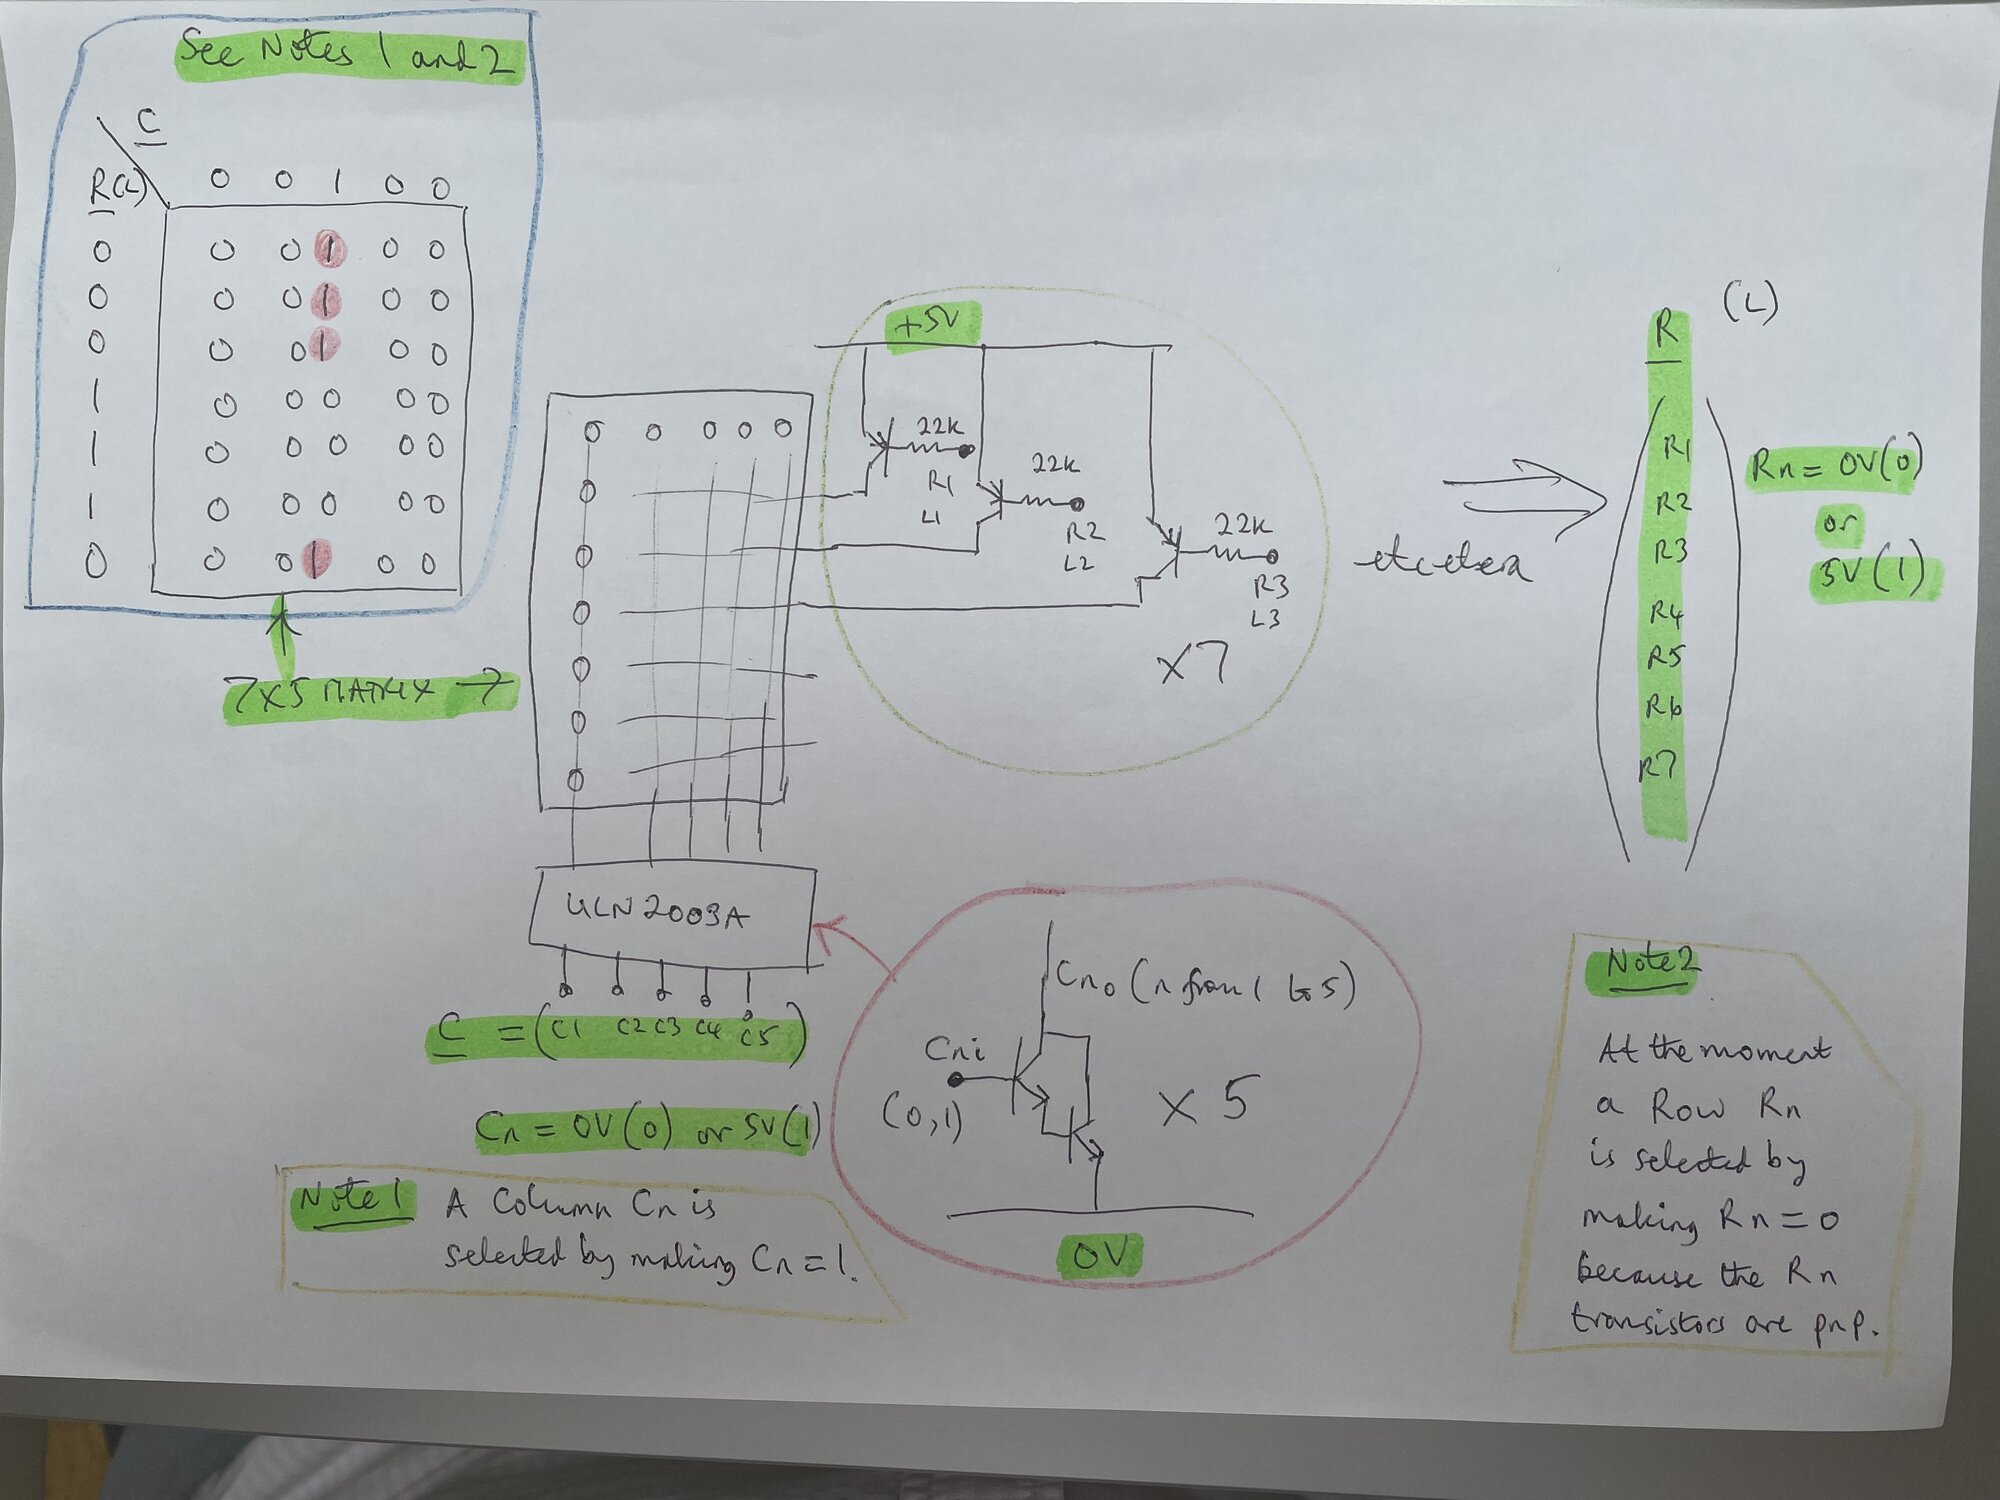 See Notes 1 and 2
C
R(L) 0 0 1 0 0
0 0 0 1 0 0
0 0 0 1 0 0
0 0 0 1 0 0
1 0 0 0 0 0
1 0 0 0 0 0
1 0 0 0 0 0
0 0 0 1 0 0
7X5 MATRIX →
+5V
22K
R1
L1
22K
R2
L2
22K
R3
L3
x7
etcetera
R (L)
R1
R2
R3
R4
R5
R6
R7
Rn = 0V(0)
or
5V(1)
ULN2003A
C = (C1 C2 C3 C4 C5)
Cn = 0V(0) or 5V(1)
Note 1 A Column Cn is
selected by making Cn=1.
Cno (n from 1 to 5)
Cni
(0,1)
x 5
0V
Note 2
At the moment
a Row Rn
is selected by
making Rn=0
because the Rn
transistors are pnp.